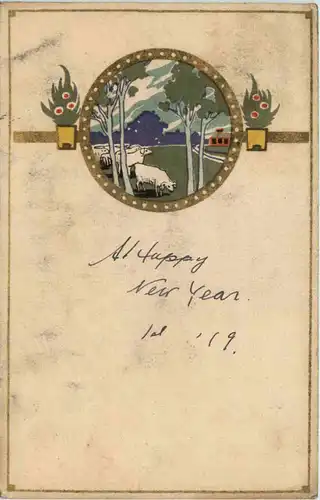 A Happy
New Year.
'19.